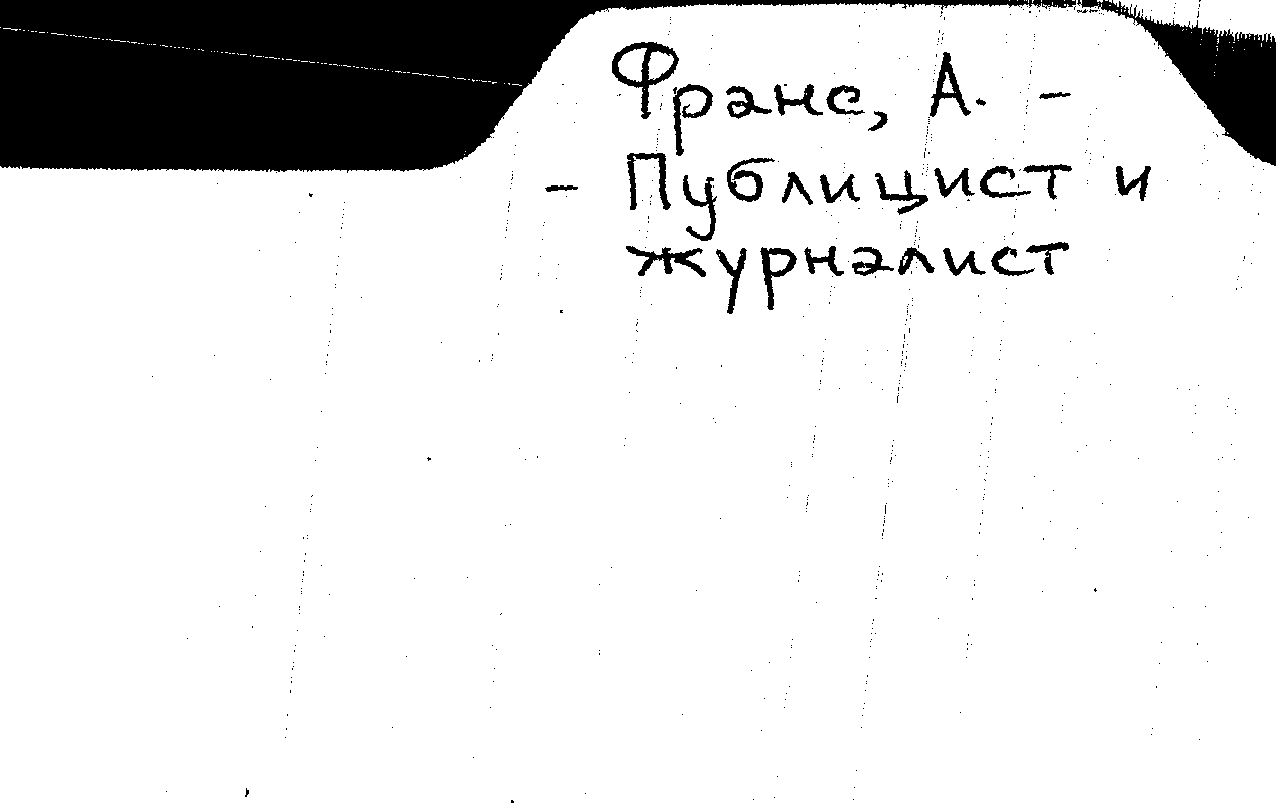 Франс, А. –
– Публицист и
журналист